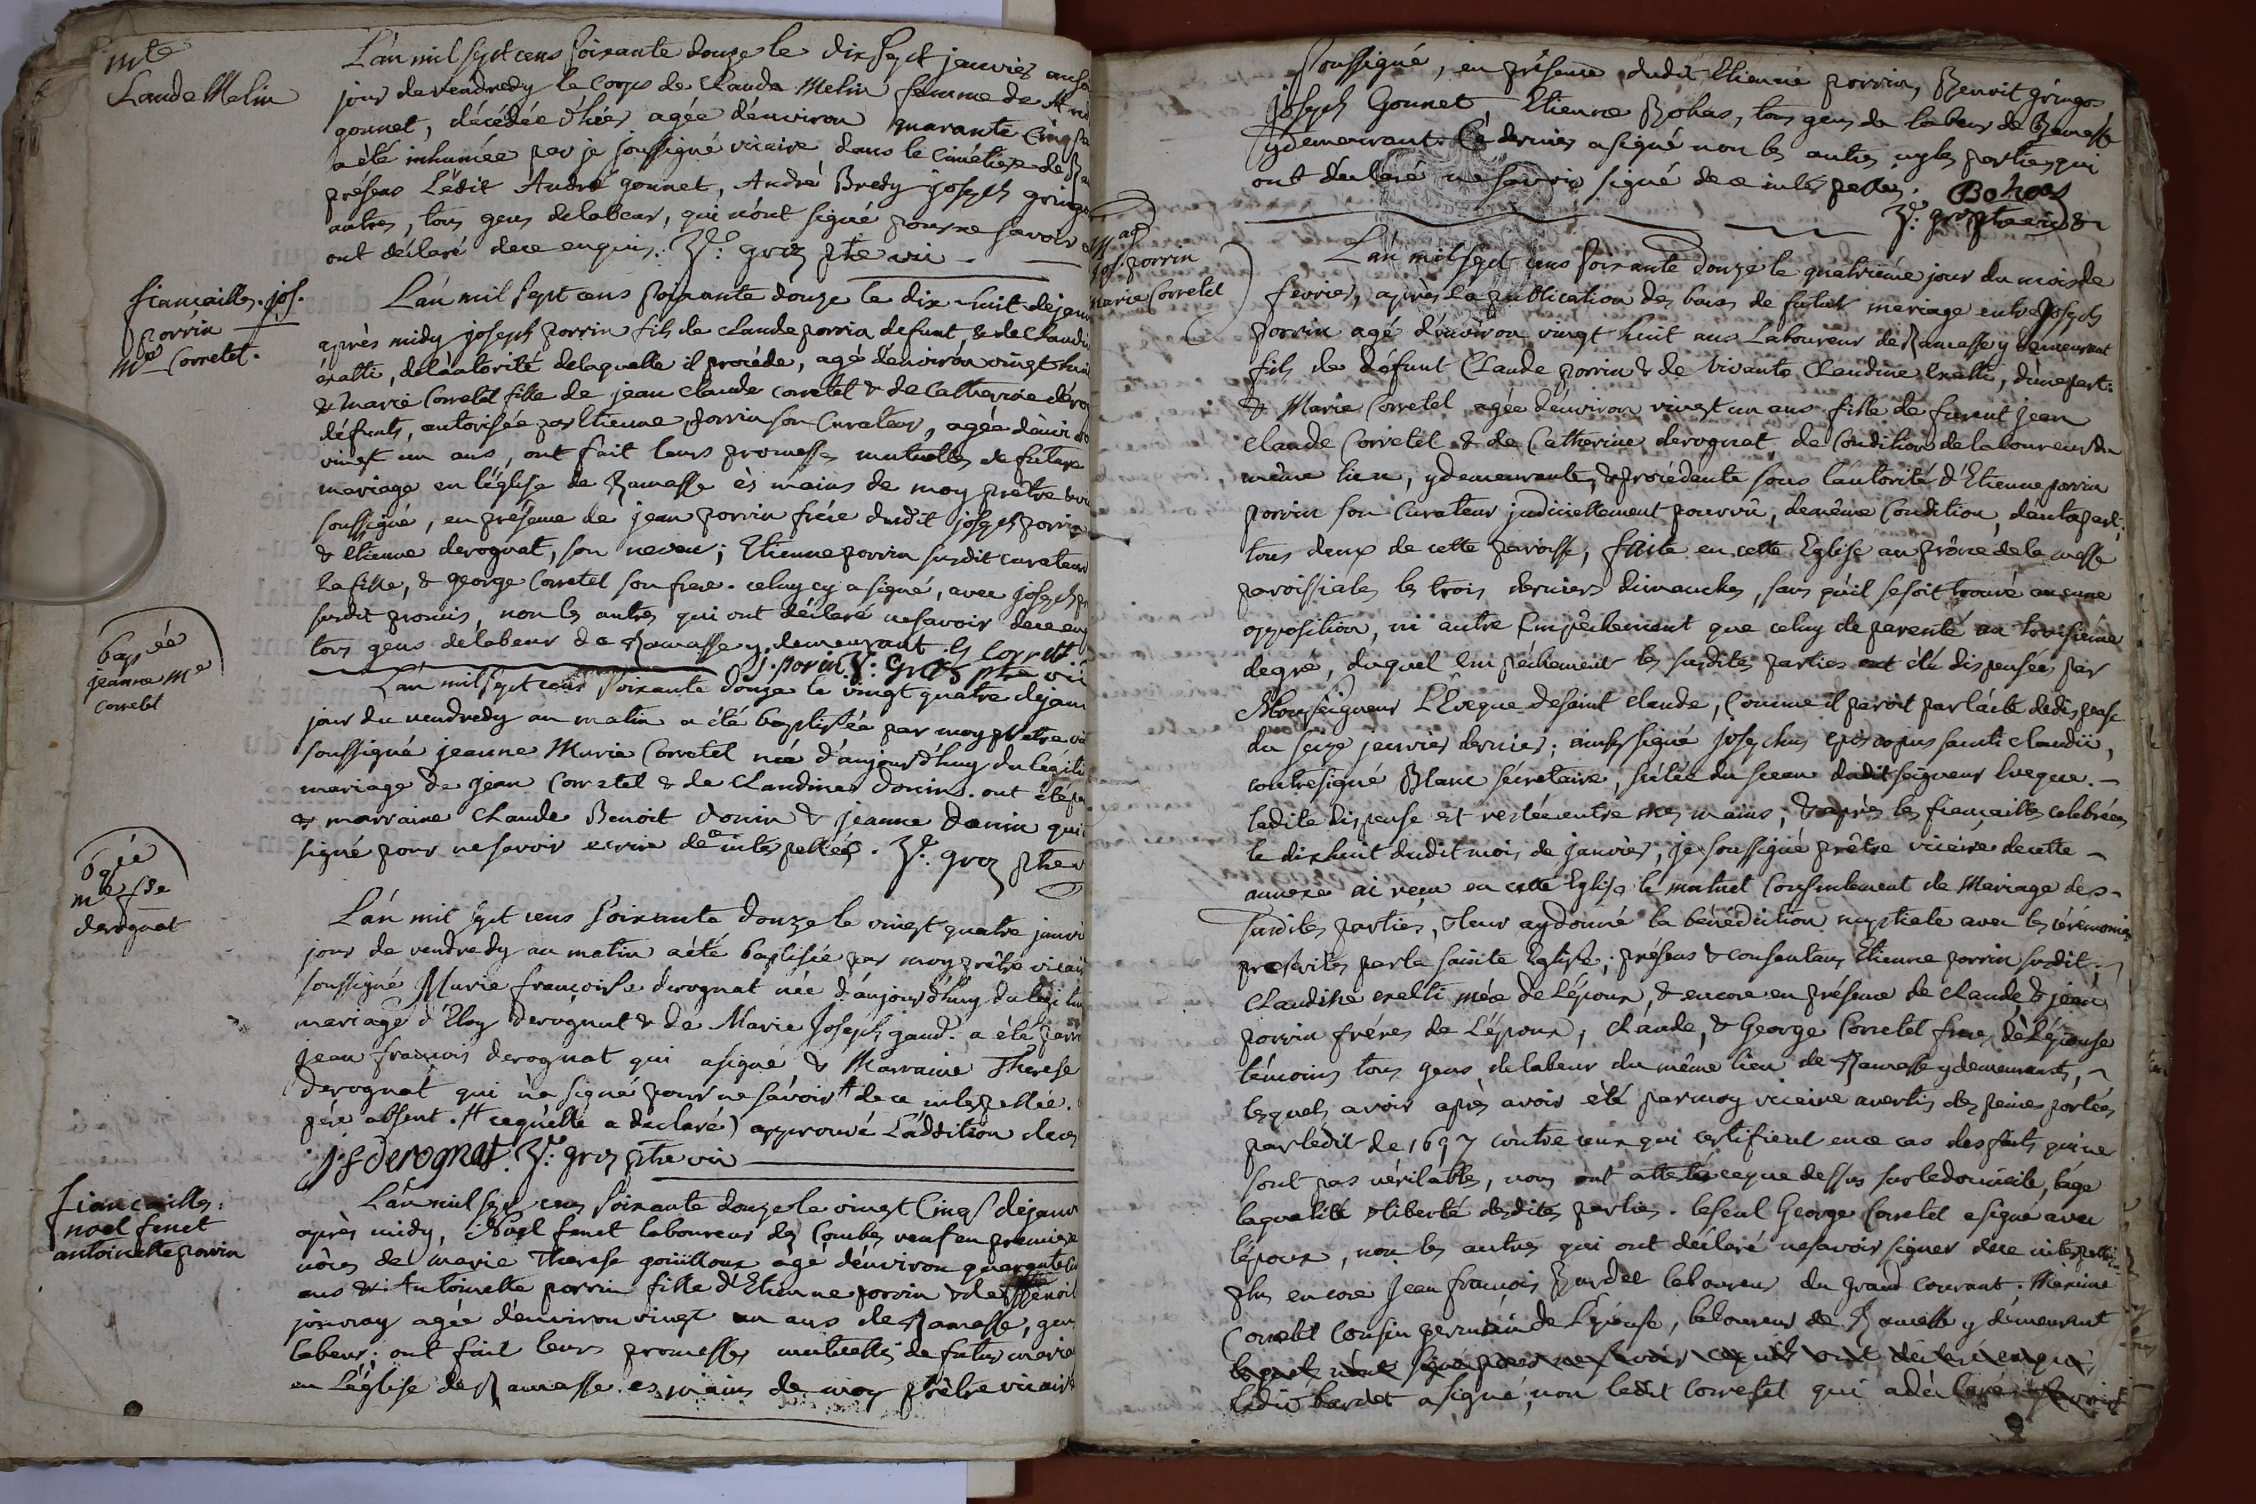 mte
Claude Melin
L'an mil sept cens soixante douze le dix sept janvier
jour de vendredy le corps de Claude Melin femme de
gonnet, décédée d'hier agée d'environ quarante cinq
a été inhumée par je soussigné vicaire dans le cimétiere de
présens Lédit André gonnet, André Bredy joseph
autres, tous gens de labeur, qui n'ont signé pour ne savoir
ont déclaré de ce enquis. groz ptre vic
fiancailles. jos.
porrin
Mie Corretel.
L'an mil sept cens soixante douze le dix-huit de
après midy joseph porrin fils de claude porrin defunt, & de
exalti, de l'autorité de laquelle il procéde, agé d'environ vingt huit
& marie Corretel fille de jean claude corretel & de Catherine
défunts, autorisée par Etienne porrin son Curateur, agée
vingt un ans, ont fait leurs promesses mutuelles de future
mariage en l'église de Ramasse ès mains de moy prêtre
soussigné, en présence de jean porrin frére dudit joseph porrin
& Etienne derognat, son neveu; Etienne porrin susdit curateur
la fille, & george Corretel son frere. celuy cy a signé, avec joseph
susdit promis, non les autres qui ont déclaré ne savoir de ce
tous gens de labeur de Ramasse y demeurant. g Corretel
j. porin groz ptre vic
bapée
jeanne Me
Corretel
L'an mil sept cens soixante douze le vingt quatre
jour du vendredy au matin a été baptisée par moy prêtre
soussigné jeanne Marie Corretel née d'aujourd'huy du
mariage de jean Corretel & de Claudine donin. ont été
& marraine Claude Benoit donin & jeanne donin qui
signé pour ne savoir ecrire de ce interpellés. groz ptre
bapée
me fse
derognat
L'an mil sept cens soixante douze le vingt quatre
jour de vendredy au matin a été baptisée par moy prêtre
soussigné Marie françoise derognat née d'aujourd'huy du
mariage d'Eloy derognat & de Marie Joseph gaud. a été
jean françois derognat qui a signé & Marraine Therese
derognat qui n'a signé pour ne savoir # de ce interpellée.
pére absent. # ce qu'elle a declaré) approuvé L'addition
j f derognat. groz ptre vic
fiancailles:
noel fenet
antoinette porrin
L'an mil sept cens soixante douze le vingt Cinq
après midy, Noel fenet laboureur des Combes veuf en premiere
nôces de marie Therese agé d'environ
ans & Antoinette porrin fille d'Etienne porrin & de
agée d'environ vingt un ans de Ramasse,
labeur; ont fait leurs promesses mutuelles de futur
en L'église de Ramasse es mains de moy prêtre
soussigné, en présence dudit Etienne porrin, Benoit
joseph Gonnet Etienne Bohas, tous gens de labeur de Ramasse
y demeurant. Ce dernier a signé non les autres ny les parties qui
ont déclaré ne savoir signé de ce interpellés. Bohas
groz ptre vic
Mag
jos. porrin
marie Corretel
L'an mil sept cens soixante douze le quatrieme jour du mois de
fevrier, après la publication des bans de futur mariage entre Joseph
porrin agé d'environ vingt huit ans Laboureur de Ramasse y demeurant
fils de défunt Claude porrin & de vivante Claudine Exalti, d'une part:
& Marie Corretel agée d'environ vingt un ans fille de furent jean
claude Corretel & de Catherine derognat, de Condition de laboureur du
même lieu, y demeurante, & procédante sous l'autorité d'Etienne porrin
porrin son Curateur judiciellement pourvû, de même Condition, d'autre part;
tous deux de cette paroisse, faite en cette Eglise au prône de la messe
paroissiale les trois derniers dimanches, sans qu'il se soit trouvé aucune
opposition, ni autre Empêchement que celuy de parenté au troisieme
degré, duquel empéchement les susdites parties ont été dispensées par
Monseigneur L'Eveque de saint claude, Comme il paroit par l'acte de dispense
du seize janvier dernier; signé Josephus episcopus sancti claudii,
contresigné Blanc sécrétaire, scélée du sceau dudit seigneur eveque.
ladite dispense est restée entre mes mains; & après les fiançailles celebrées
le dix huit dudit mois de janvier, je soussigné prêtre vicaire de cette
annexe ai reçu en cette Eglise le mutuel Consentement de Mariage des
susdites parties, & leur ay donné la bénédiction nuptiale avec les cérémonies
prescrites par la sainte Eglise; présens & consentans Etienne porrin susdit;
Claudine exalti mére de L'époux, & encore en présence de claude & jean
porrin fréres de L'époux; Claude, & George Corretel freres de L'épouse
témoins tous gens de labeur du même lieu de Ramasse y demeurants,
lesquels avoir après avoir été par moy vicaire avertis des peines portées
par l'édit de 1697 contre ceux qui certifient en ce cas des faits qui ne
sont pas véritables, nous ont attesté ce que dessus sur le domicile, l'age
la qualité & liberté desdites parties. le seul George Corretel a signé avec
l'époux, non les autres qui ont déclaré ne savoir signer de ce interpellés
plus encore Jean francois Bardet laboureur du grand Corrant. Maxime
Corretel Cousin germain de L'épouse, laboureur de Ramasse y demeurant
ledit bardet a signé, non ledit Corretel qui a déclaré